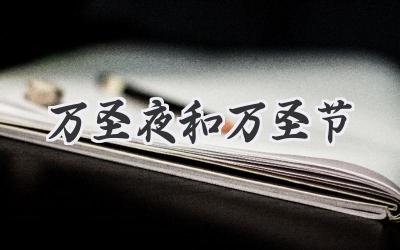 万圣夜和万圣节